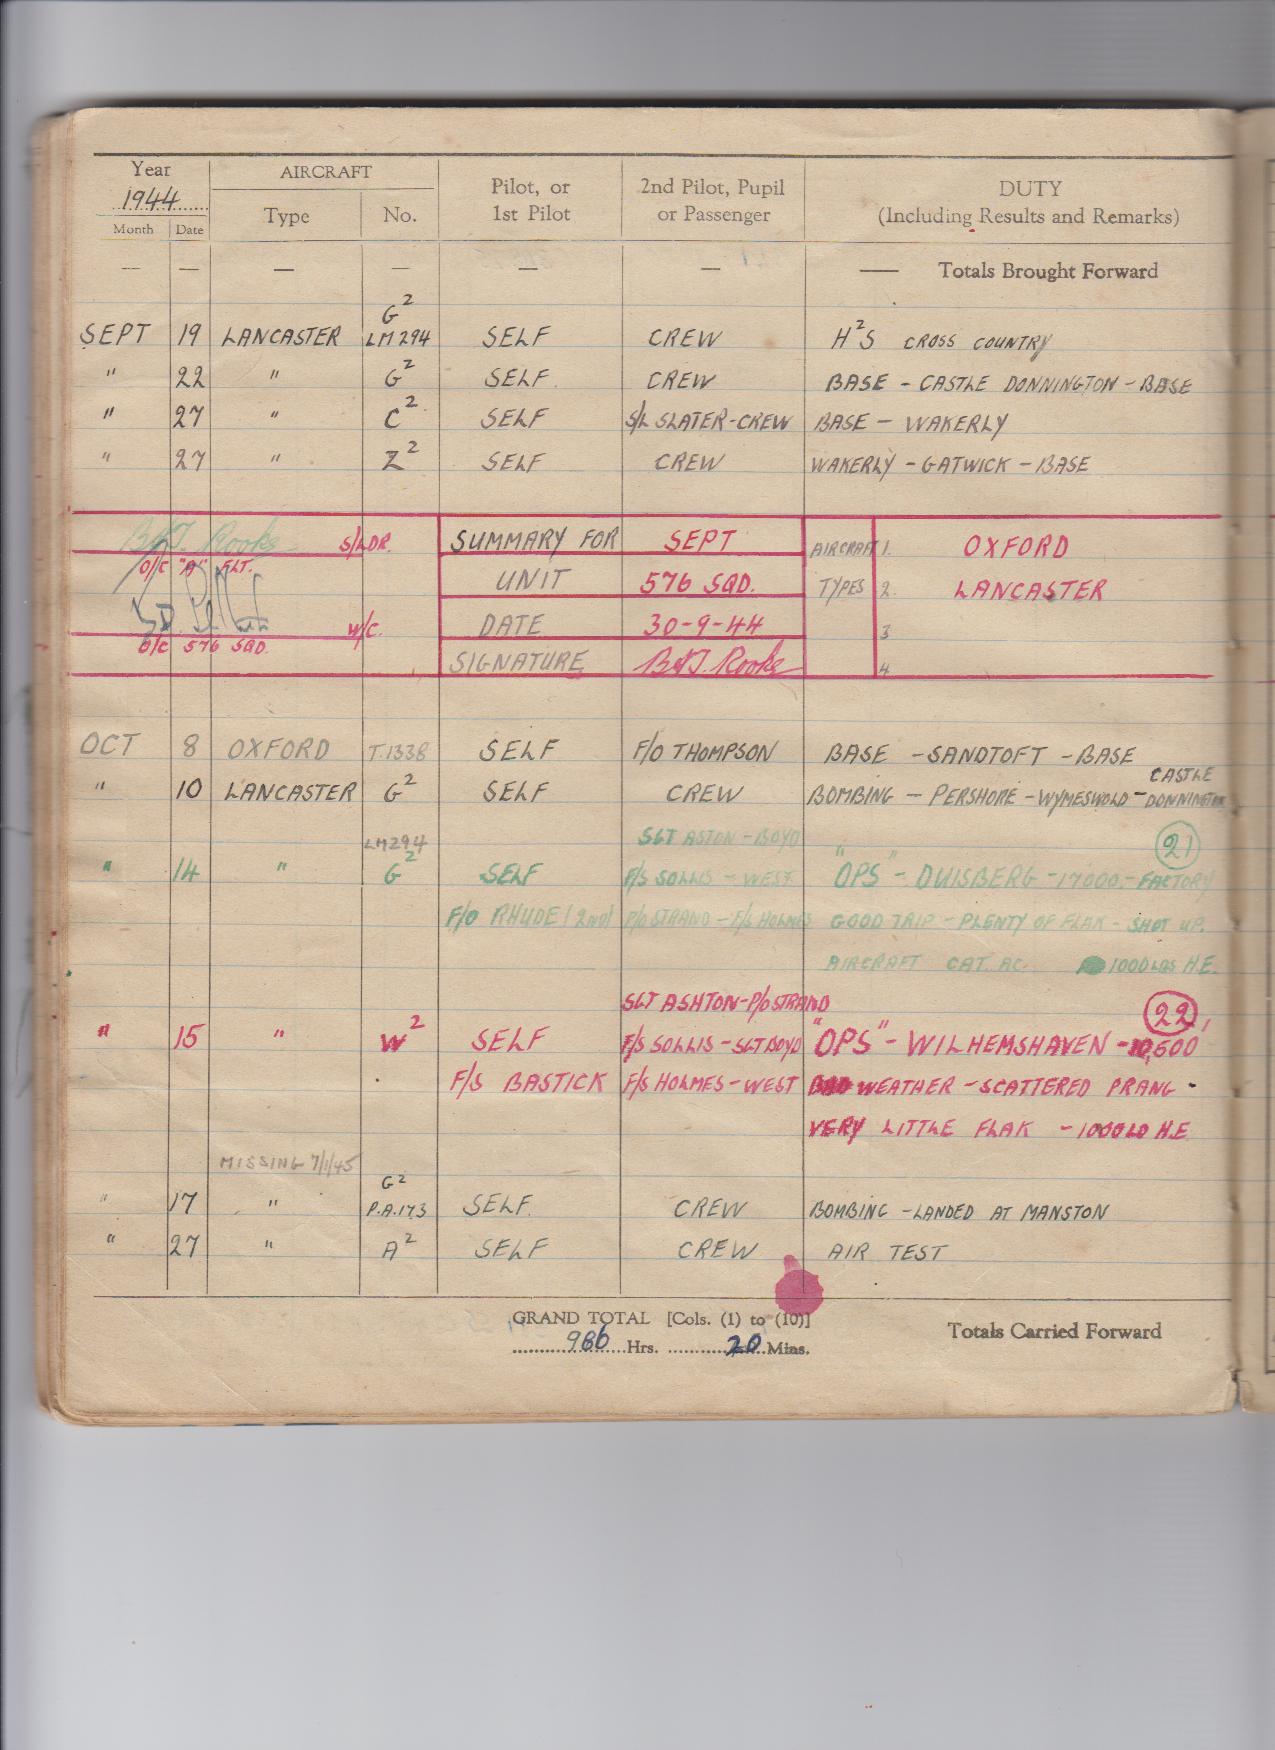 Year
1944
Month Date
AIRCRAFT
Type No.
Pilot, or
1st Pilot
2nd Pilot, Pupil
or Passenger
DUTY
(Including Results and Remarks)
— — — — — — — Totals Brought Forward
G²
SEPT 19 LANCASTER LM294 SELF CREW H²S CROSS COUNTRY
" 22 " G² SELF. CREW BASE - CASTLE DONNINGTON - BASE
" 27 " C² SELF S/L SLATER-CREW BASE - WAKERLY
" 27 " Z² SELF CREW WAKERLY - GATWICK - BASE
B.A.J. Rooke S/LDR.
O/C "A" FLT.
W/C.
O/C 576 SQD.
SUMMARY FOR SEPT
UNIT 576 SQD.
DATE 30-9-44
SIGNATURE Rooke
AIRCRAFT 1. OXFORD
TYPES 2. LANCASTER
3
4
OCT 8 OXFORD T.1338 SELF F/O THOMPSON BASE - SANDTOFT - BASE
" 10 LANCASTER G² SELF CREW BOMBING - PERSHORE - WYMESWOLD - CASTLE DONNINGTON
LM294 SGT ASTON - BOYD 21
" 14 " G² SELF F/S SOLLIS - WEST "OPS" - DUISBERG - 17000 - FACTORY
F/O RHUDE (2nd) P/O STRAND - F/S HOLMES GOOD TRIP - PLENTY OF FLAK - SHOT UP.
AIRCRAFT CAT. AC. 1000 LBS H.E.
SGT ASHTON - P/O STRAND 22
" 15 " W² SELF F/S SOLLIS - SGT BOYD "OPS" - WILHEMSHAVEN - 10,500
F/S BASTICK F/S HOLMES - WEST BAD WEATHER - SCATTERED PRANG -
VERY LITTLE FLAK - 1000 LB H.E
MISSING 7/1/45
G²
" 17 " P.A.173 SELF. CREW BOMBING - LANDED AT MANSTON
" 27 " A² SELF CREW AIR TEST
GRAND TOTAL [Cols. (1) to (10)]
986 Hrs. 20 Mins.
Totals Carried Forward